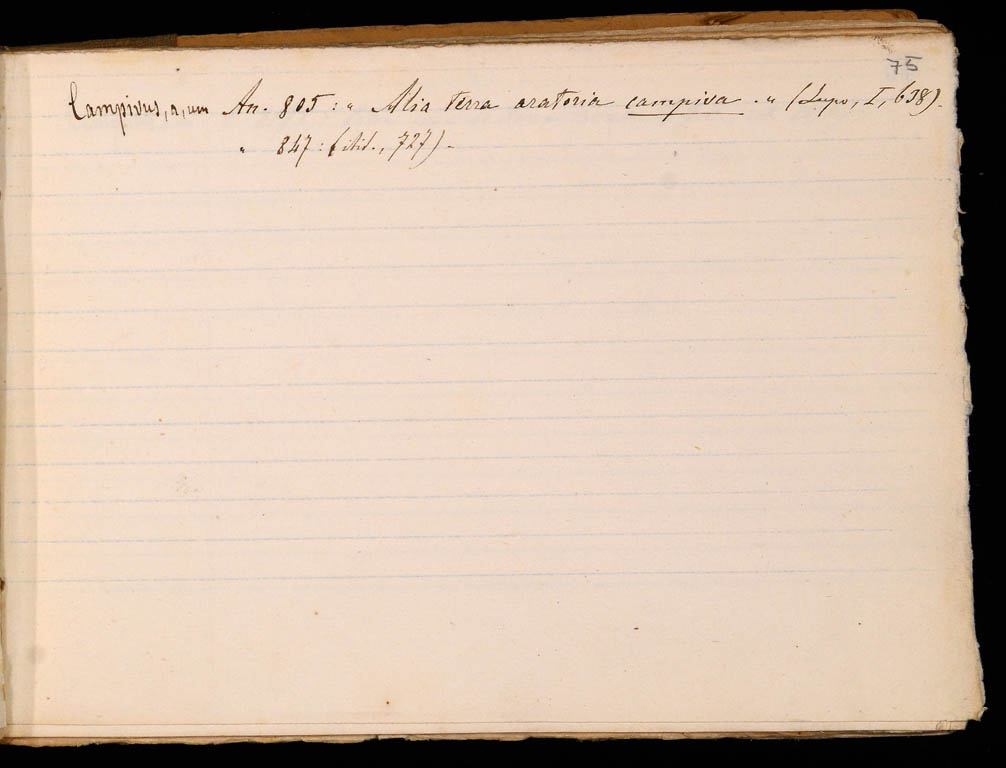 75
Campivus, a, um An. 805 : " Alia terra aratoria campiva . " (Lupo, I, 638).
" 847 : (ibid., 727) -